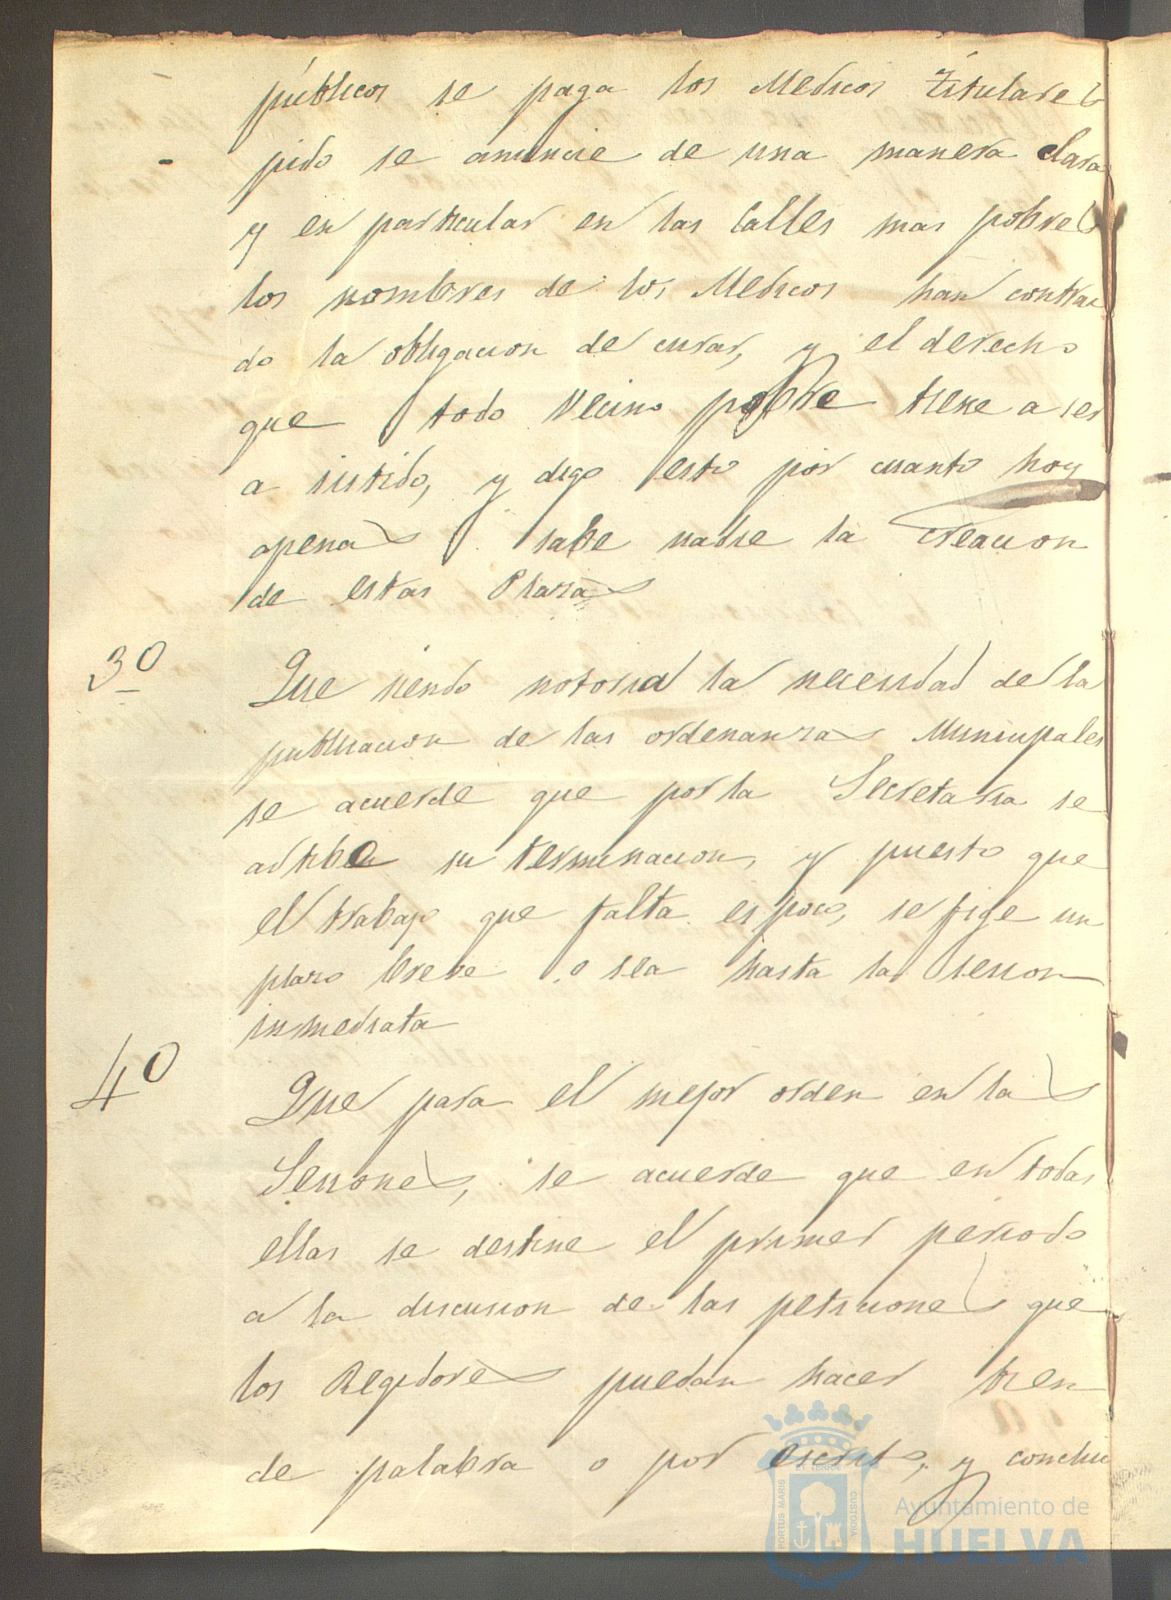 públicos se paga los Medicos titulares
pido se anuncie de una manera clara
y en particular en las Calles mas pobres
los nombres de los Medicos han contrai
do la obligacion de curar, y el derecho
que todo Vecino pobre tiene a ser
a sistido, y digo esto por cuanto hoy
apenas sabe nadie la creacion
de estas Plazas
3º
Que siendo notoria la necesidad de la
publicacion de las ordenanzas Municipales
se acuerde que por la Secretaria se
active su terminacion, y puesto que
el trabajo que falta es poco, se fige un
plazo breve o sea hasta la sesion
inmediata
4º
Que para el mejor orden en las
Sesiones, se acuerde que en todas
ellas se destine el primer periodo
a la discusion de las peticiones que
los Regidores puedan hacer bien
de palabra o por escrito, y conclui
PORTUS MARIS
CUSTODIA
Ayuntamiento de
HUELVA